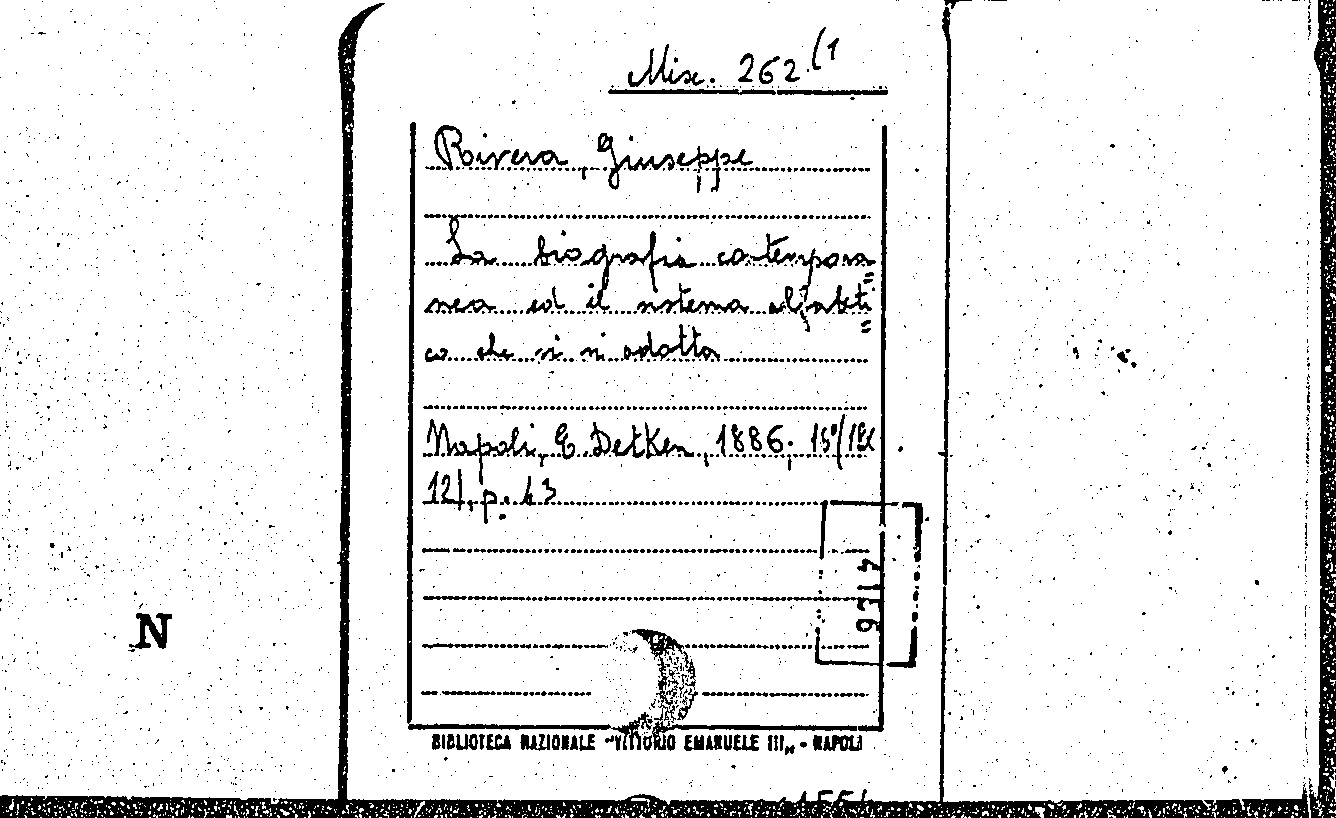 Misc. 262 (1
Rivera, Giuseppe
La biografia contempora
nea ed il sistema alfabeti=
co che si si adotta
Napoli, E. Detken, 1886; 15°/
12/, p. 43
9317
N
BIBLIOTECA NAZIONALE "VITTORIO EMANUELE III„ - NAPOLI